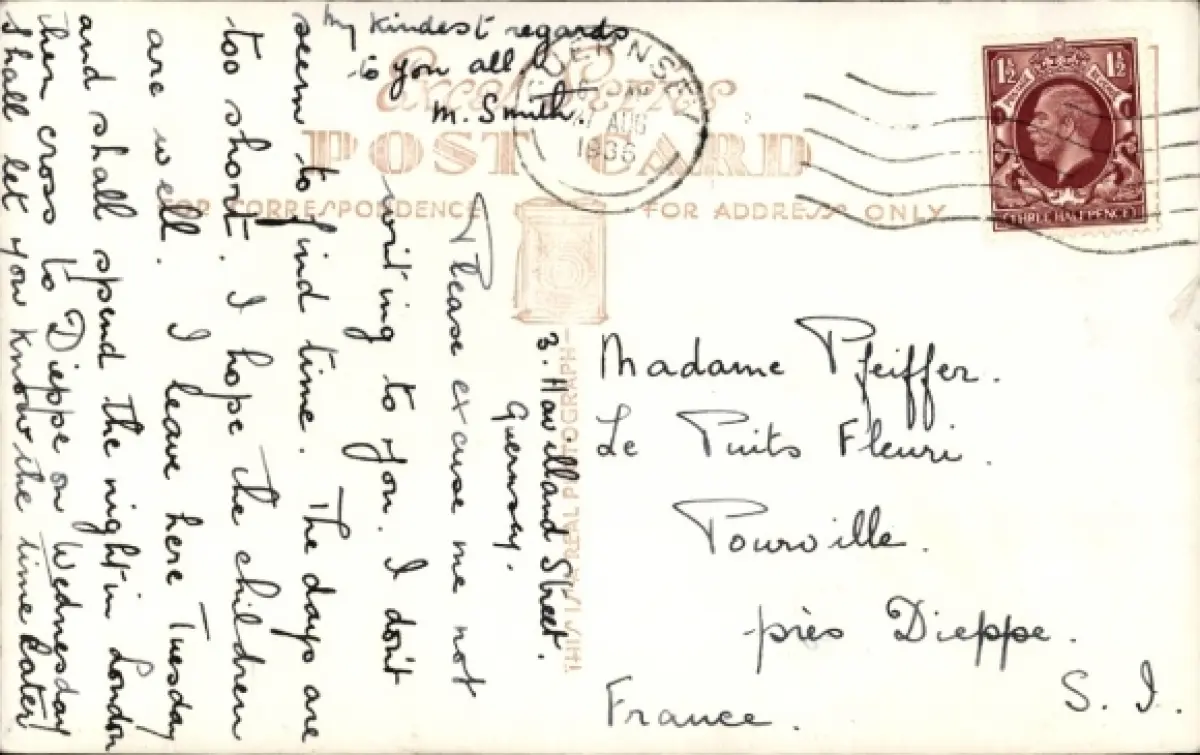 3. Havilland Street.
Guernsey.
Please excuse me not
writing to you. I don't
seem to find time. The days are
too short. I hope the children
are well. I leave here Tuesday
and shall spend the night in London
then cross to Dieppe on Wednesday
Shall let you know the time later!
My kindest regards
to you all
M. Smith.
POST CARD
FOR CORRESPONDENCE
FOR ADDRESS ONLY
THIS IS A REAL PHOTOGRAPH
GUERNSEY
AUG
1936
1½ 1½
POSTAGE REVENUE
THREE HALFPENCE
Madame Pfeiffer.
Le Puits Fleuri.
Pourville.
près Dieppe.
S. I.
France.